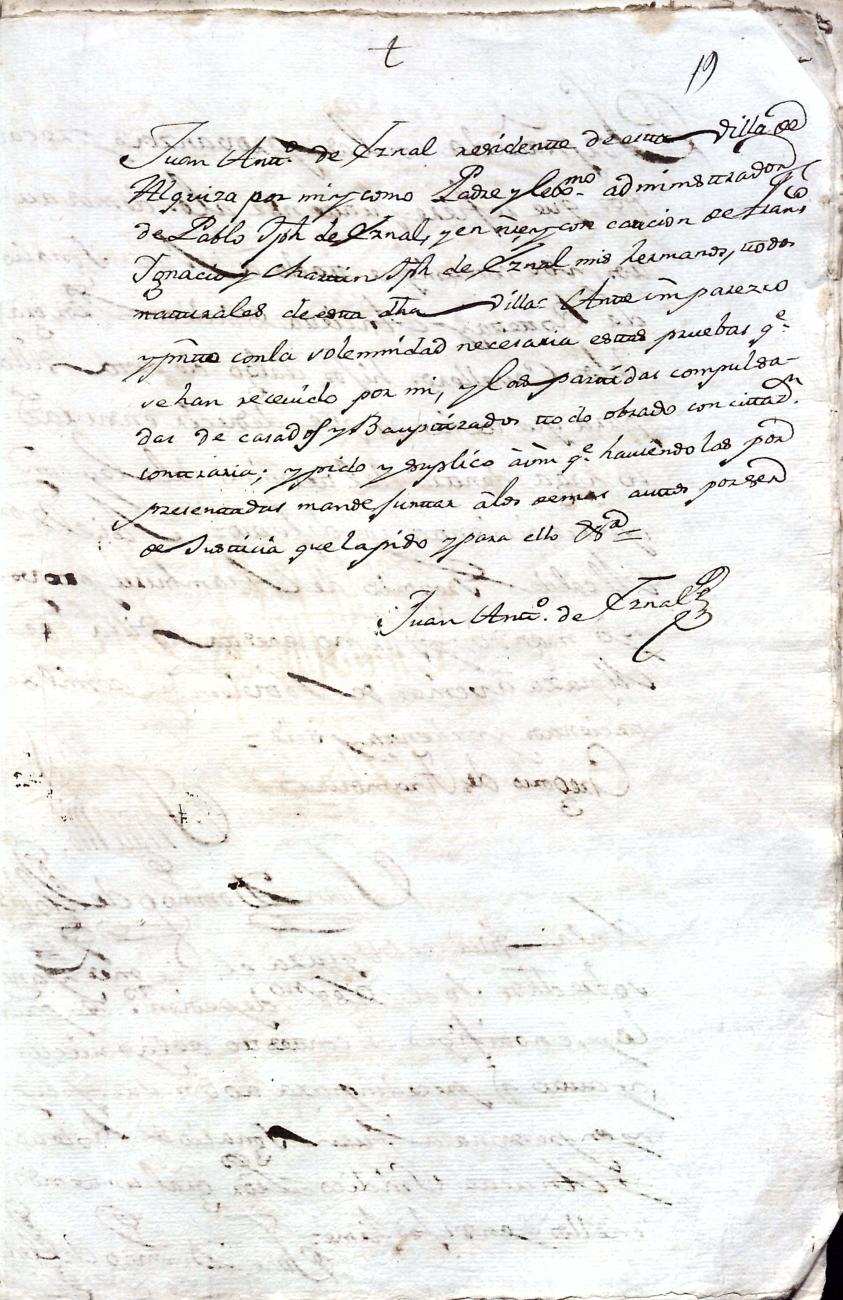 t
19
Juan Antto. de Yznal residente de esta villa de
Alquiza por mi y como Padre y lexmo. administrador
de Pablo Jph de Yznal, y en nre, y con caucion de Franco
Ygnacio y Martin Jph de Yznal mis hermanos, todos
naturales de esta dha villa = Ante vm parezco
y pnto con la solemnidad necesaria estas pruebas qe.
se han reciuido por mi, y las partidas compulsa-
das de casados y Bauptizados todo obrado con cittan.
contraria; y pido y suplico à vm qe. hauiendolas por
presentadas mande juntar à los demas autos por ser
de Justicia que la pido y para ello &a =
Juan Anto. de Yznal